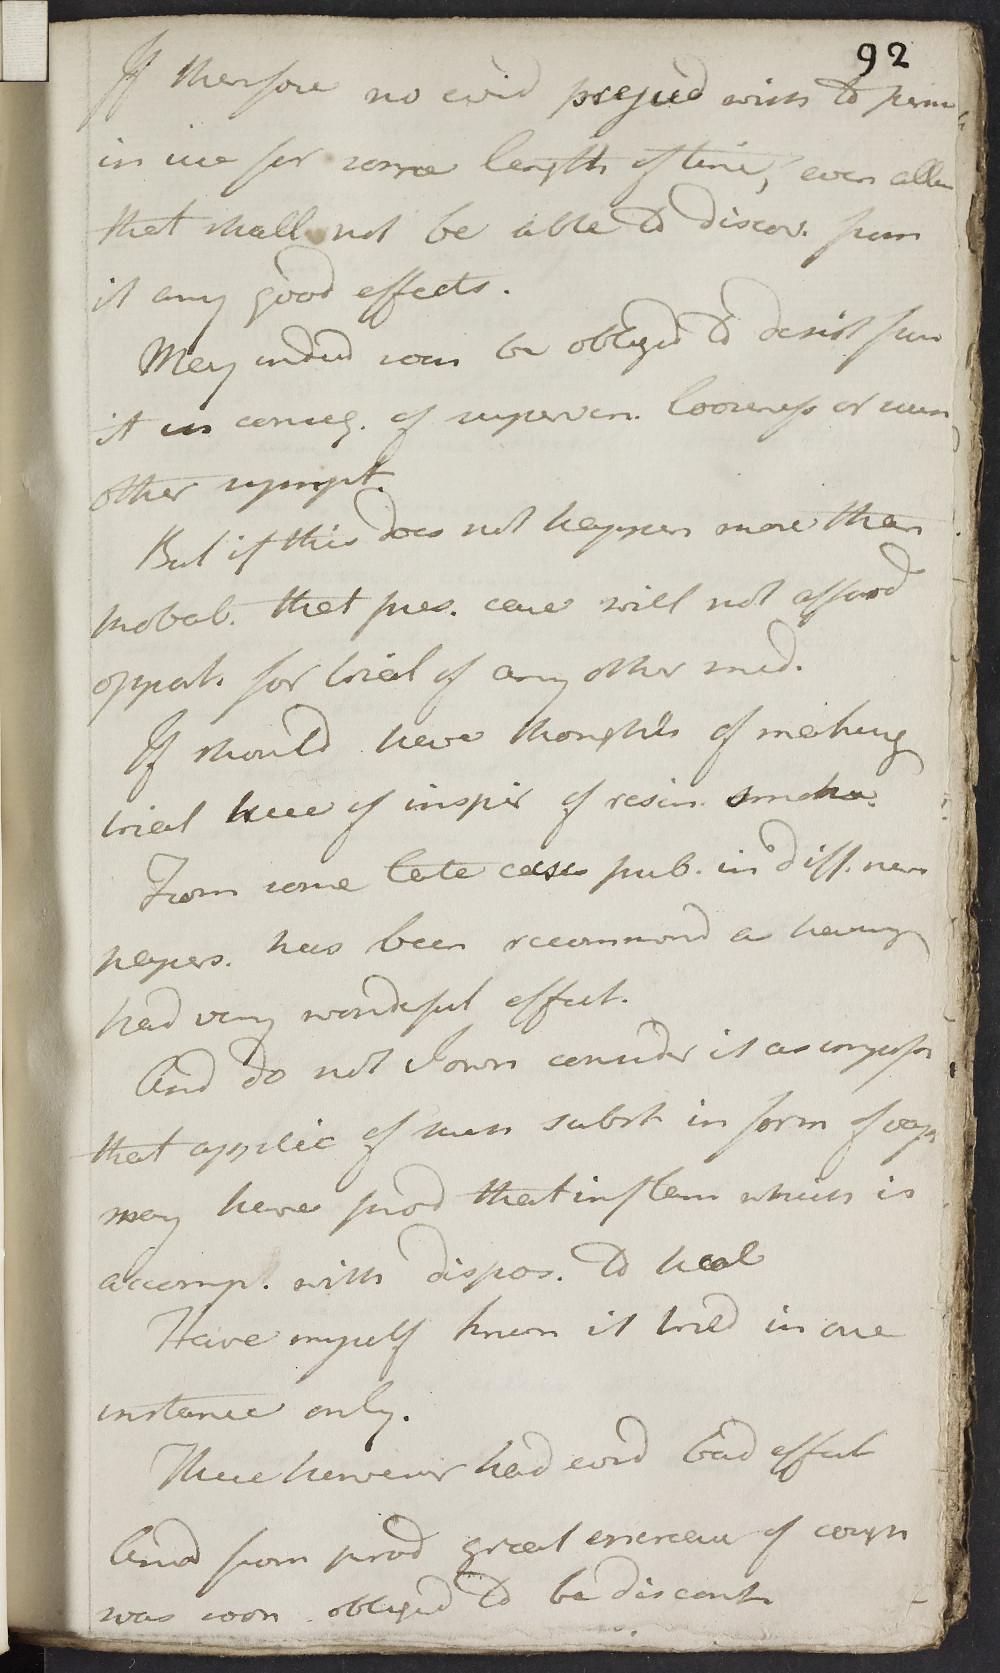 92
If therefore no evid prejud wish to persis
in use for some length of time, even altho
that shall not be able to discov. from
it any good effects.
May indeed soon be obliged to desist from
it in conseq. of superven. looseness or such
other sympt.
But if this does not happen more than
probab. that pres. case will not afford
opport. for trial of any other med.
If should have thoughts of making
trial here of inspir of resin. smoke.
From some late cases pub. in diff. news
papers. has been recommend as having
had very wonderful effect.
And do not I own consider it as imposs
that applic of such subst in form of vap
may have prod that inflam which is
accomp. with dispos. to heal
Have myself known it tried in one
instance only.
There however had evid bad effect
And from prod great encrease of cough
was soon obliged to be discont